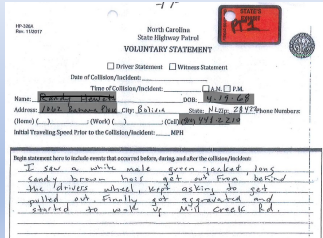 HP-328A
Rev. 11/2017
STATE'S
North Carolina
State Highway Patrol
VOLUNTARY STATEMENT
Driver Statement Witness Statement
Date of Collision/Incident:
Time of Collision/Incident: A.M. P.M.
Name: DOB: 4-19-68
Address: 1062 City: Bolivia State: NC Zip: 28422 Phone Numbers:
(Home) ( ) (Work) ( ) (Cell)
Initial Traveling Speed Prior to the Collision/Incident: MPH
Begin statement here to include events that occurred before, during, and after the collision/incident:
I saw a white male green jacket long
sandy brown hair get out from behind
the drivers wheel, kept asking to get
pulled out. Finally got aggravated and
started to walk up Mill Creek Rd.